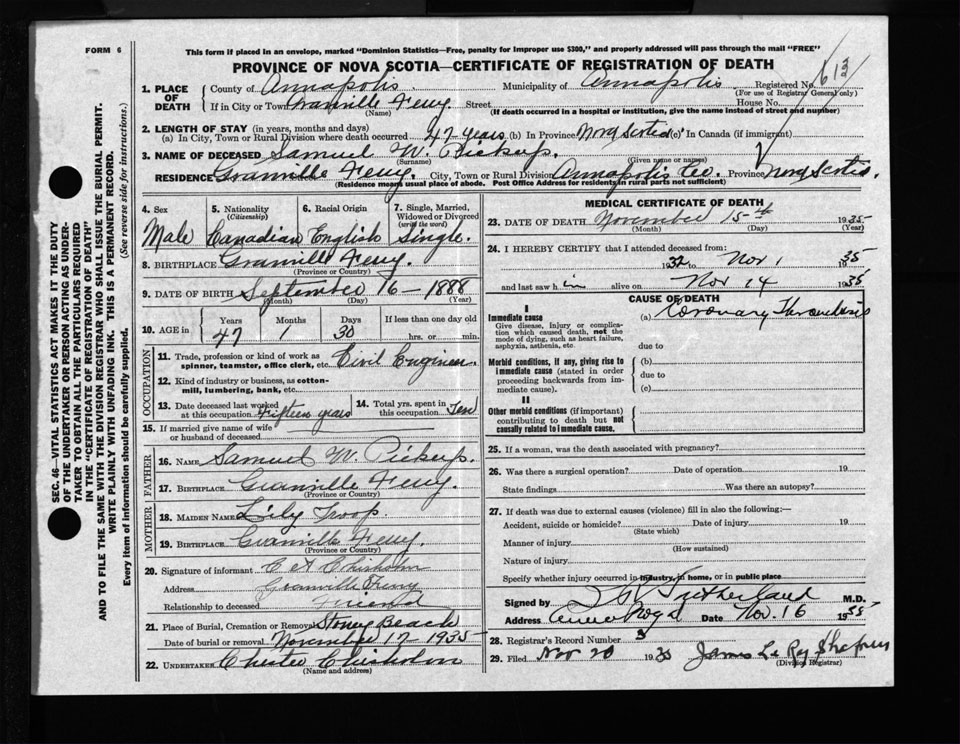 FORM 6
This form if placed in an envelope, marked "Dominion Statistics—Free, penalty for improper use $300," and properly addressed will pass through the mail "FREE"
PROVINCE OF NOVA SCOTIA—CERTIFICATE OF REGISTRATION OF DEATH
1. PLACE OF DEATH
County of Annapolis. Municipality of Annapolis Registered No.
(For use of Registrar General only)
If in City or Town Granville Ferry. Street House No.
(Name) (If death occurred in a hospital or institution, give the name instead of street and number)
2. LENGTH OF STAY (in years, months and days)
(a) In City, Town or Rural Division where death occurred 47 years (b) In Province Nova Scotia (c) In Canada (if immigrant)
3. NAME OF DECEASED Samuel W. Pickup.
(Surname) (Given name or names)
RESIDENCE Granville Ferry. City, Town or Rural Division Annapolis Co. Province Nova Scotia.
(Residence means usual place of abode. Post Office Address for residents in rural parts not sufficient)
4. Sex
Male
5. Nationality
(Citizenship)
Canadian
6. Racial Origin
English
7. Single, Married, Widowed or Divorced
(write the word)
Single.
8. BIRTHPLACE Granville Ferry.
(Province or Country)
9. DATE OF BIRTH September 16 - 1888
(Month) (Day) (Year)
10. AGE in
Years Months Days If less than one day old
47 1 30 hrs. or min.
OCCUPATION
11. Trade, profession or kind of work as spinner, teamster, office clerk, etc. Civil Engineer.
12. Kind of industry or business, as cotton-mill, lumbering, bank, etc.
13. Date deceased last worked at this occupation Fifteen years
14. Total yrs. spent in this occupation Ten
15. If married give name of wife or husband of deceased
FATHER
16. NAME Samuel W. Pickup.
17. BIRTHPLACE Granville Ferry.
(Province or Country)
MOTHER
18. MAIDEN NAME Lily Troop.
19. BIRTHPLACE Granville Ferry.
(Province or Country)
20. Signature of informant Chisholm
Address Granville Ferry
Relationship to deceased Friend
21. Place of Burial, Cremation or Removal Stoney Beach
Date of burial or removal November 17 - 1935
22. UNDERTAKER Chester Chisholm
(Name and address)
MEDICAL CERTIFICATE OF DEATH
23. DATE OF DEATH November 15-th 1935
(Month) (Day) (Year)
24. I HEREBY CERTIFY that I attended deceased from:
1932 to Nov 1 1935
and last saw him alive on Nov 14 1935
CAUSE OF DEATH
I
Immediate cause
Give disease, injury or complication which caused death, not the mode of dying, such as heart failure, asphyxia, asthenia, etc.
(a) Coronary Thrombosis
due to
Morbid conditions, if any, giving rise to immediate cause (stated in order proceeding backwards from immediate cause).
(b)
due to
(c)
II
Other morbid conditions (if important) contributing to death but not causally related to immediate cause.
25. If a woman, was the death associated with pregnancy?
26. Was there a surgical operation? Date of operation 19
State findings Was there an autopsy?
27. If death was due to external causes (violence) fill in also the following:—
Accident, suicide or homicide? Date of injury 19
(State which)
Manner of injury
(How sustained)
Nature of injury
Specify whether injury occurred in industry, in home, or in public place
Signed by Sutherland M.D.
Address Date Nov. 16 1935
28. Registrar's Record Number 3
29. Filed Nov 20 1935 James Le Roy
(Division Registrar)
SEC. 46—VITAL STATISTICS ACT MAKES IT THE DUTY
OF THE UNDERTAKER OR PERSON ACTING AS UNDER-
TAKER TO OBTAIN ALL THE PARTICULARS REQUIRED
IN THE "CERTIFICATE OF REGISTRATION OF DEATH"
AND TO FILE THE SAME WITH THE DIVISION REGISTRAR WHO SHALL ISSUE THE BURIAL PERMIT.
WRITE PLAINLY WITH UNFADING INK. THIS IS A PERMANENT RECORD.
Every item of information should be carefully supplied. (See reverse side for instructions.)